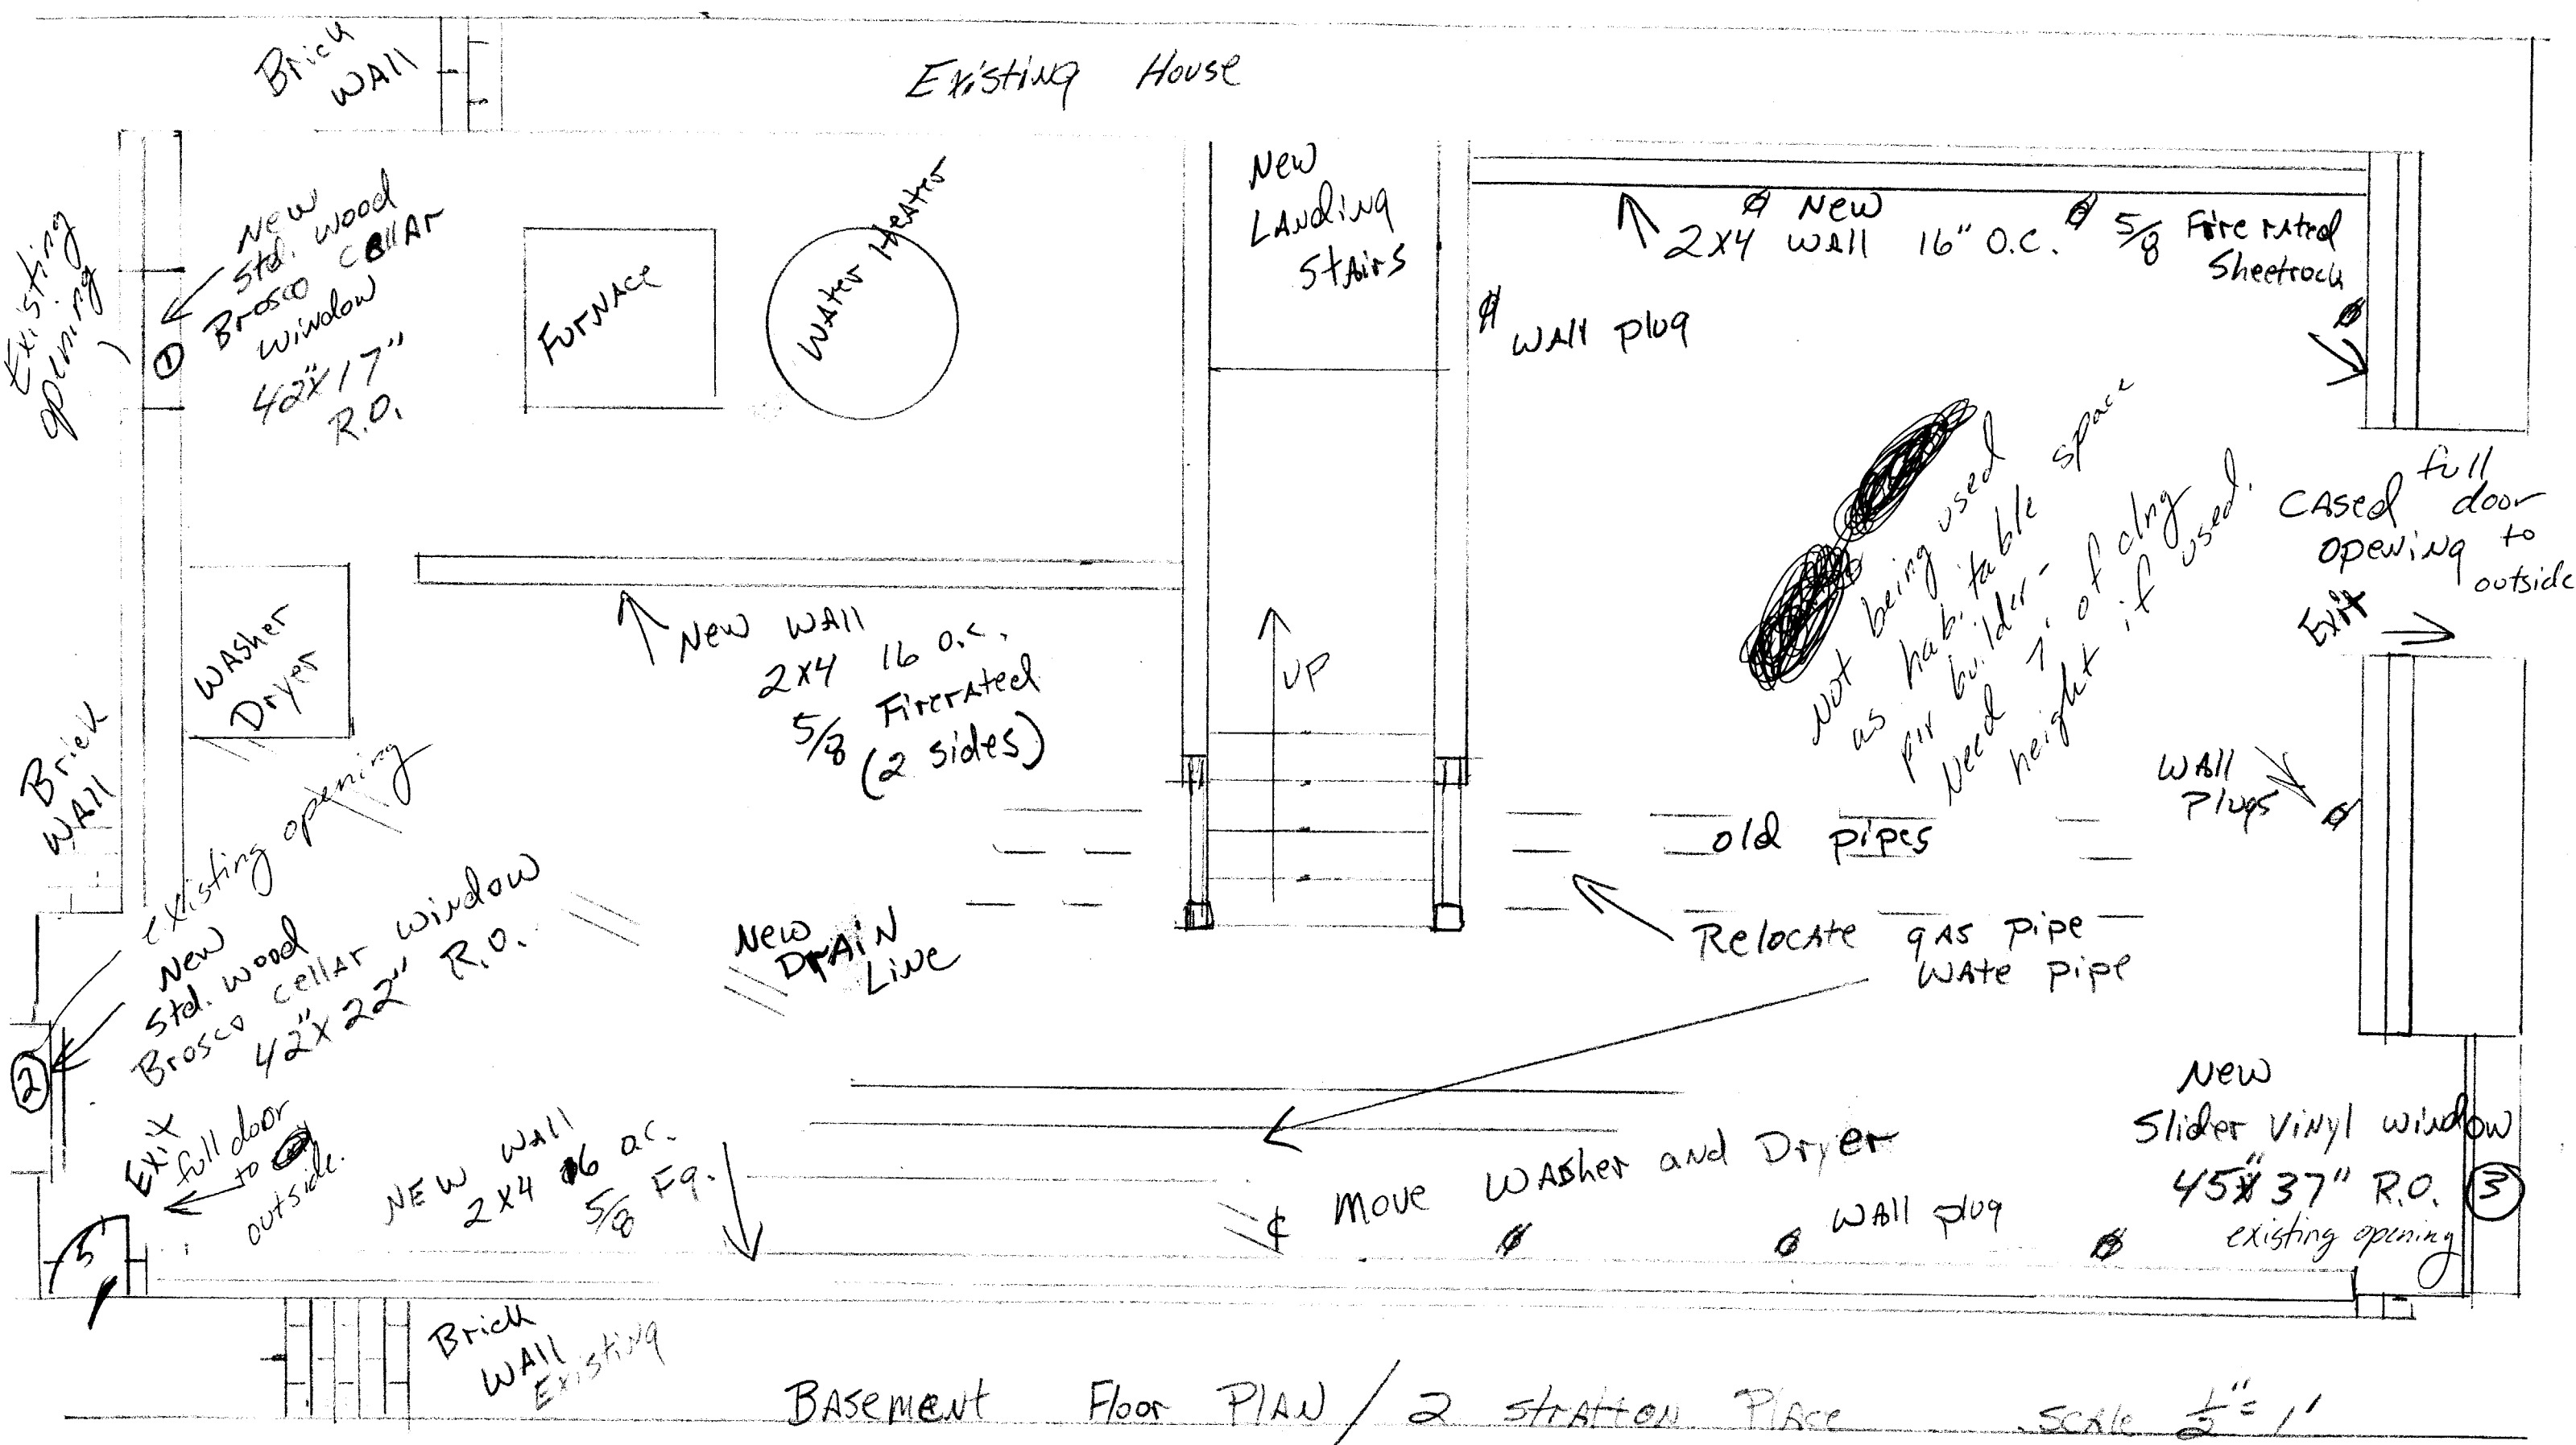 Brick
WALL
Existing House
Existing
opening
New
Std. wood
Brosco CellAr
Window
42"x17"
R.O.
1
FurNAce
WAter HeAter
New
LANding
StAirs
New
2x4 WALL 16" O.C.
5/8 Fire rAted
Sheetrock
WAll plug
Not being used
as habitable space
pir builder-
Need 7' of clng
height if used.
full
CAsed door
opening to
outside
Exit
WAsher
Dryer
New WAll
2x4 16 O.C.
5/8 FirerAted
(2 sides)
UP
WAll
Plugs
Brick
WAll
existing opening
New
Std. wood
Brosco cellAr window
42"x22" R.O.
2
New
DrAiN
LiNe
old pipes
RelocAte gAs pipe
WAte pipe
Exit
full door
to
outside.
NEW WAll
2x4 16 O.C.
5/8 Fg.
¢ Move WAsher and Dryer
WAll plug
New
Slider Vinyl window
45"x37" R.O. 3
existing opening
Brick
WAll
Existing
BAsement Floor PlAN / 2 StrAttoN PlAce Scale 1/2" = 1'